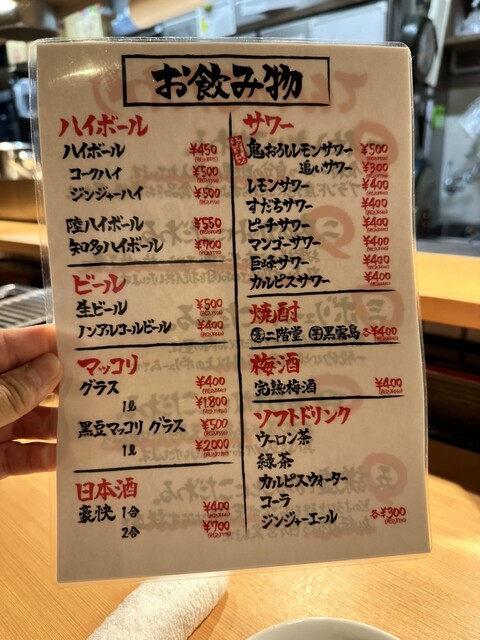 お飲み物
ハイボール
ハイボール ¥450
コークハイ ¥500
ジンジャーハイ ¥500
陸ハイボール ¥550
知多ハイボール ¥700
ビール
生ビール ¥500
ノンアルコールビール ¥400
マッコリ
グラス ¥400
1ℓ ¥1,800
黒豆マッコリ グラス ¥500
1ℓ ¥2000
日本酒
豪快 1合 ¥400
2合 ¥700
サワー
鬼おろしレモンサワー ¥500
追いサワー ¥300
レモンサワー ¥400
すだちサワー ¥400
ピーチサワー ¥400
マンゴーサワー ¥400
巨峰サワー ¥400
カルピスサワー ¥400
焼酎
麦二階堂 芋黒霧島 各¥400
梅酒
完熟梅酒 ¥400
ソフトドリンク
ウーロン茶
緑茶
カルピスウォーター
コーラ
ジンジャーエール 各¥300